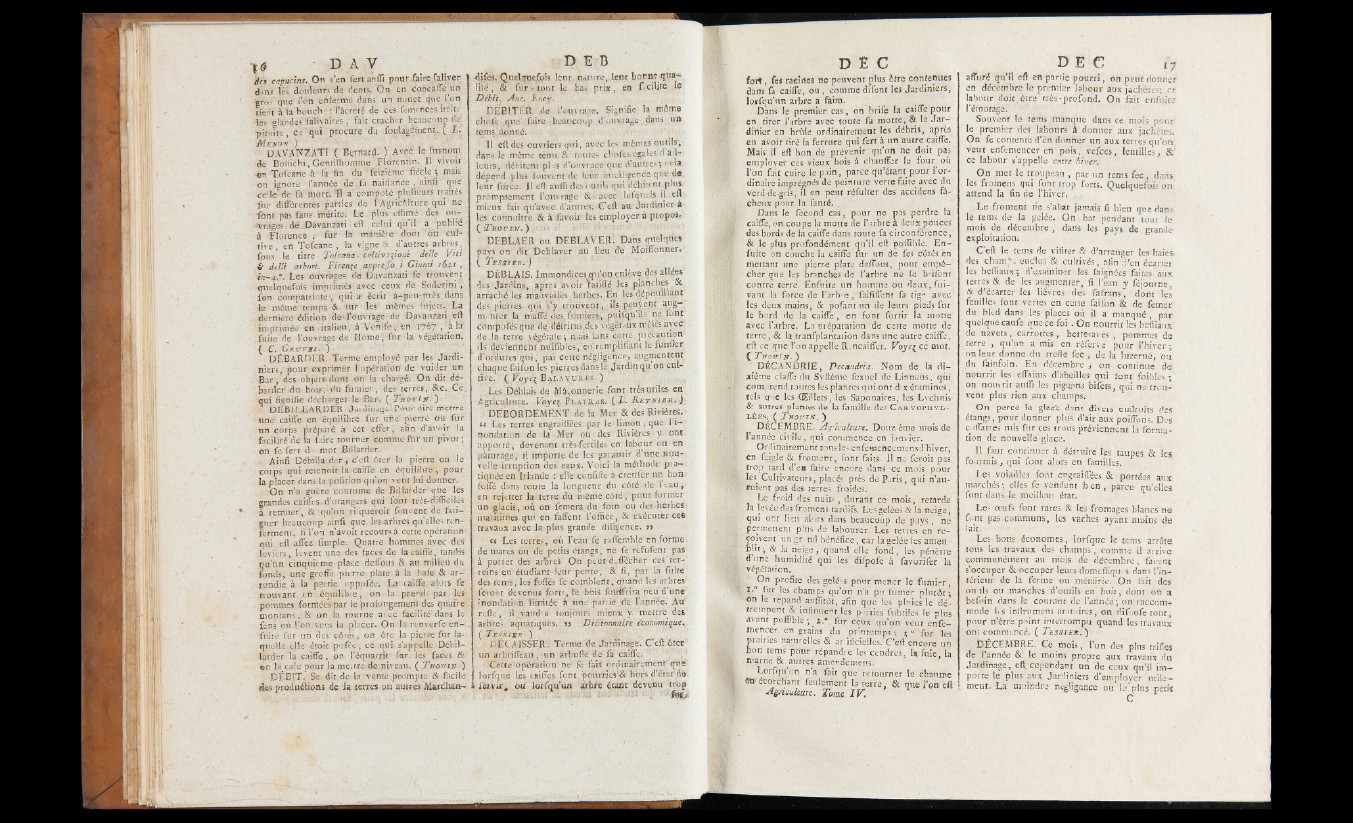 16 DAV
des capucins. On s'en sert aussi pour faire saliver
dans les douleurs de dents. On en concasse un
gros que l'on enferme dans un nouet que l'on
tient à la bouche : l'âcreté de ces semences irrite
les glandes salivaires, fait cracher beaucoup de
pituite, ce qui procure du soulagement. ( L.
MENON )
DAVANZATI ( Bernard. ) Avec le surnom
de Bostichi, Gentilhomme Florentin. Il vivoit
en Toscane à la fin du seizième siècle ; mais
on ignore l'année de sa naissance, ainsi que
celle de sa mort. Il a composé plusieurs traités
sur différentes parties de l'Agriculture qui ne
sont pas sans mérite. Le plus estimé des ou-
vrages de Davanzati est celui qu'il a publié
à Florence ; sur la manière dont on cul-
tive, en Toscane, la vigne & d'autres arbres,
sous le titre Toscana coltivazione delle Viti
& delli arbori. Firenze appresso i Giunti 1621,
in-4.°. Les ouvrages de Davanzati se trouvent
quelquefois imprimés avec ceux de Soderini,
son compatriote, qui a écrit à-peu-près dans
le même temps & sur les mêmes sujets. La
derniere édition de l'ouvrage de Davanzati est
imprimée en italien, à Venise, en 1767, à la
suite de l'ouvrage de Home, sur la végétation.
( C. GRUVEL. )
DÉBARDER. Terme employé par les Jardi-
niers, pour exprimer l'opération de vuider un
Bar, des objets dont on l'a chargé. On dit dé-
barder du bois, du fumier, des terres, &c. Ce
qui signifie décharger le Bar. ( THOUIN. )
DÉBILLARDER. Jardinage. Pour dire mettre
une caisse en équilibre sur une pierre ou sur
un corps préparé à cet effet, afin d'avoir la
facilité de la faire tourner comme sur un pivot ;
on se sert du mot Billarder.
Ainsi Débillarder, c'est ôter la pierre ou le
corps qui retenoit la caisse en équilibre, pour
la placer dans la position qu'on veut lui donner.
On n'a guère coutume de Billarder que les
grandes caisses d'orangers qui sont très-difficiles
à remuer, & qu'on risqueroit souvent de fati-
guer beaucoup ainsi que les arbres qu'elles ren-
ferment, si l'on n'avoit recours à cette opération
qui est assez simple. Quatre hommes avec des
leviers, levent une des faces de la caisse, tandis
qu'un cinquième place dessous & au milieu du
fonds, une grosse pierre plate à la base & ar-
rondie à la partie opposée. La caisse alors se
trouvant en équilibre, on la prend par les
pommes formées par le prolongement des quatre
montans, & on la tourne avec facilité dans le
sens où l'on veut la placer. On la renverse en-
suite sur un des côtés, on ôte la pierre sur la-
quelle elle étoit posée, ce qui s'appelle Débil-
larder la caisse, on l'équarrit sur les faces &
on la cale pour la mettre de niveau. ( THOUIN. )
DÉBIT. Se dit de la vente prompte & facile
des productions de la terres ou autres Marchan-
DEB
dises. Quelquefois leur nature, leur bonne qua-
lité, & sur-tout le bas prix, en facilite le
Débit. Anc. Ency.
DEBITER de l'ouvrage. Signifie la même
chose que faire beaucoup d'ouvrage dans un
tems donné.
Il est des ouvriers qui, avec les mêmes outils,
dans le même tems & toutes choses égales d'ail-
leurs, débitent plus d'ouvrage que d'autres ; cela
dépend plus souvent de leur intelligence que de
leur force. Il est aussi des outils qui débitent plus
promptement l'ouvrage & avec lesquels il est
mieux fait qu'avec d'autres. C'est au Jardinier à
les connoître & à savoir les employer à propos.
( THOUIN. )
DEBLAER ou DEBLAVER. Dans quelques
pays on dit Deblaver au lieu de Moissonner.
( TESSIER. )
DÉBLAIS. Immondices qu'on enlève des allées
des Jardins, après avoir ratissé les planches &
arraché les mauvaises herbes. En les dépouillant
des pierres qui s'y trouvent, ils peuvent aug-
menter la masse des fumiers, puisqu'ils ne sont
composés que de détritus des végétaux mêlés avec
de la terre végétale ; mais sans cette précaution
ils deviennent nuisibles, en remplissant le fumier
d'ordures qui, par cette négligence, augmentent
chaque saison les pierres dans le Jardin qu'on cul-
tive. ( Voyez BALAYURES. )
Les Déblais de Maçonnerie sont très utiles en
Agriculture. Voyez PLATRAS. ( L. REYNIER. )
DEBORDEMENT de la Mer & des Rivières.
« Les terres engraissées par le limon, que l'i-
nondation de la Mer ou des Rivières y ont
apporté, devenant très-fertiles en labour ou en
pâturage, il importe de les garantir d'une nou-
velle irruption des eaux. Voici la méthode pra-
tiquée en Irlande : elle consiste à creuser un bon
fossé dans toute la longueur du côté de l'eau,
en rejetter la terre du même côté, pour former
un glacis, où on semera du foin ou des herbes
maritimes qui en fassent l'office, & exécuter ces
travaux avec la plus grande diligence. »
« Les terres, où l'eau se rassemble en forme
de mares ou de petits étangs, ne se refusent pas
à porter des arbres. On peut dessécher ces ter-
reins en étudiant leur pente, & si, par la suite
des tems, les fossés se comblent, quand les arbres
seront devenus forts, le bois souffrira peu d'une
inondation limitée à une partie de l'année. Au
reste, il vaudra toujours mieux y mettre des
arbres aquatiques. » Dictionnaire économique.
( TESSIER )
DÉCAISSER. Terme de Jardinage. C'est ôter
un arbrisseau, un arbuste de sa caisse.
Cette opération ne se fait ordinairement que
lorsque les caisses sont pourries & hors d'état de
servir, ou lorsqu'un arbre étant devenu trop
fort,
DÉC
fort, ses racines ne peuvent plus être contenues
dans sa caisse, ou, comme disent les Jardiniers,
lorsqu'un arbre a faim.
Dans le premier cas, on brise la caisse pour
en tirer l'arbre avec toute sa motte, & le Jar-
dinier en brûle ordinairement les débris, après
en avoir tiré la ferrure qui sert à un autre caisse.
Mais il est bon de prévenir qu'on ne doit pas
employer ces vieux bois à chauffer le four où
l'on fait cuire le pain, parce qu'étant pour l'or-
dinaire imprégnés de peinture verte faite avec du
verd de gris, il en peut résulter des accidens fâ-
cheux pour la santé.
Dans le second cas, pour ne pas perdre la
caisse, on coupe la motte de l'arbre à deux pouces
des bords de la caisse dans toute sa circonférence,
& le plus profondément qu'il est possible. En-
suite on couche la caisse sur un de ses côtés en
mettant une pierre plate dessous, pour empê-
cher que les branches de l'arbre ne se brisent
contre terre. Ensuite un homme ou deux, sui-
vant la force de l'arbre, saisissent sa tige avec
les deux mains, & posant un de leurs pieds sur
le bord de la caisse, en font sortir la motte
avec l'arbre. La préparation de cette motte de
terre, & la transplantation dans une autre caisse,
est ce que l'on appelle Rencaisser. Voyez ce mot.
( THOUIN. )
DÉCANDRIE, Decandria. Nom de la di-
xième classe du Système sexuel de Linneus, qui
comprend toutes les plantes qui ont dix étamines,
tels que les Œillets, les Saponaires, les Lychnis
& autres plantes de la famille des CARYOPHYL-
LÉES. ( THOUIN. )
DÉCEMBRE. Agriculture. Douzième mois de
l'année civile, qui commence en janvier.
Ordinairement tous les ensemencemens d'hiver,
en seigle & froment, sont faits. Il ne seroit pas
trop tard d'en faire encore dans ce mois pour
les Cultivateurs, placés près de Paris, qui n'au-
roient pas des terres froides.
Le froid des nuits, durant ce mois, retarde
la levée des fromens tardifs. Les gelées & la neige,
qui ont lieu alors dans beaucoup de pays, ne
permettent plus de labourer. Les terres en re-
çoivent un grand bénéfice, car la gelée les ameu-
blit, & la neige, quand elle fond, les pénètre
d'une humidité qui les dispose à favoriser la
végétation.
On profite des gelées pour mener le fumier,
1.° sur les champs qu'on n'a pu fumer plutôt ;
on le répand aussitôt, afin que les pluies le dé-
trempent & insinuent les parties subtiles le plus
avant possible ; 2.° sur ceux qu'on veut ense-
mencer en grains du printemps ; 3.° sur les
prairies naturelles & artificielles. C'est encore un
bon tems pour répandre les cendres, la suie, la
marne & autres amendemens.
Lorsqu'on n'a fait que retourner le chaume
en écorchant seulement la terre, & que l'on est
Agriculture. Tome IV.
DEC 17
assuré qu'il est en partie pourri, on peut donner
en décembre le premier labour aux jachères ; ce
labour doit être très-profond. On fait ensuite
l'émotage.
Souvent le tems manque dans ce mois pour
le premier des labours à donner aux jachères.
On se contente d'en donner un aux terres qu'on
veut ensemencer en pois, vesces, lentilles, &
ce labour s'appelle entre hiver.
On met le troupeau, par un tems sec, dans
les fromens qui sont trop forts. Quelquefois on
attend la fin de l'hiver.
Le froment ne s'abat jamais si bien que dans
le tems de la gelée. On bat pendant tout le
mois de décembre, dans les pays de grande
exploitation.
C'est le tems de visiter & d'arranger les haies
des champs enclos & cultivés, afin d'en écarter
les bestiaux ; d'examiner les saignées faites aux
terres & de les augmenter, si l'eau y séjourne,
& d'écarter les lièvres des safrans, dont les
feuilles sont vertes en cette saison & de semer
du bled dans les places où il a manqué, par
quelque cause que ce soit. On nourrit les bestiaux
de navets, carrottes, betteraves, pommes de
terre, qu'on a mis en réserve pour l'hiver ;
on leur donne du trefle sec, de la luzerne, ou
du sainfoin. En décembre, on continue de
nourrir les essaims d'abeilles qui sont foibles ;
on nourrit aussi les pigeons bisets, qui ne trou-
vent plus rien aux champs.
On perce la glace dans divers endroits des
étangs, pour donner plus d'air aux poissons. Des
chaffares mis sur ces trous préviennent la forma-
tion de nouvelle glace.
Il faut continuer à détruire les taupes & les
fourmis, qui sont alors en familles.
Les volailles sont engraissées & portées aux
marchés ; elles se vendent bien, parce qu'elles
sont dans le meilleur état.
Les œufs sont rares & les fromages blancs ne
sont pas communs, les vaches ayant moins de
lait.
Les bons économes, lorsque le tems arrête
tous les travaux des champs, comme il arrive
communément au mois de décembre, savent
s'occuper & occuper leurs domestiques dans l'in-
térieur de la ferme ou métairie. On fait des
outils ou manches d'outils en bois, dont on a
besoin dans le courant de l'année ; on raccom-
mode les instrumens aratoires, on dispose tout,
pour n'être point interrompu quand les travaux
ont commencé. ( TESSIER. )
DÉCEMBRE. Ce mois, l'un des plus tristes
de l'année & le moins propre aux travaux du
Jardinage, est cependant un de ceux qu'il im-
porte le plus aux Jardiniers d'employer utile-
ment. La moindre négligence ou le plus petit
C